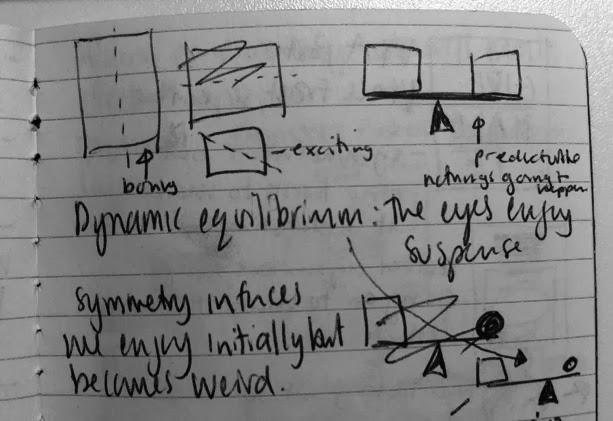 boring
exciting
predictable
nothing's going to happen
Dynamic equilibrium: The eyes enjoy
suspense
symmetry in faces
we enjoy initially but
becomes weird.